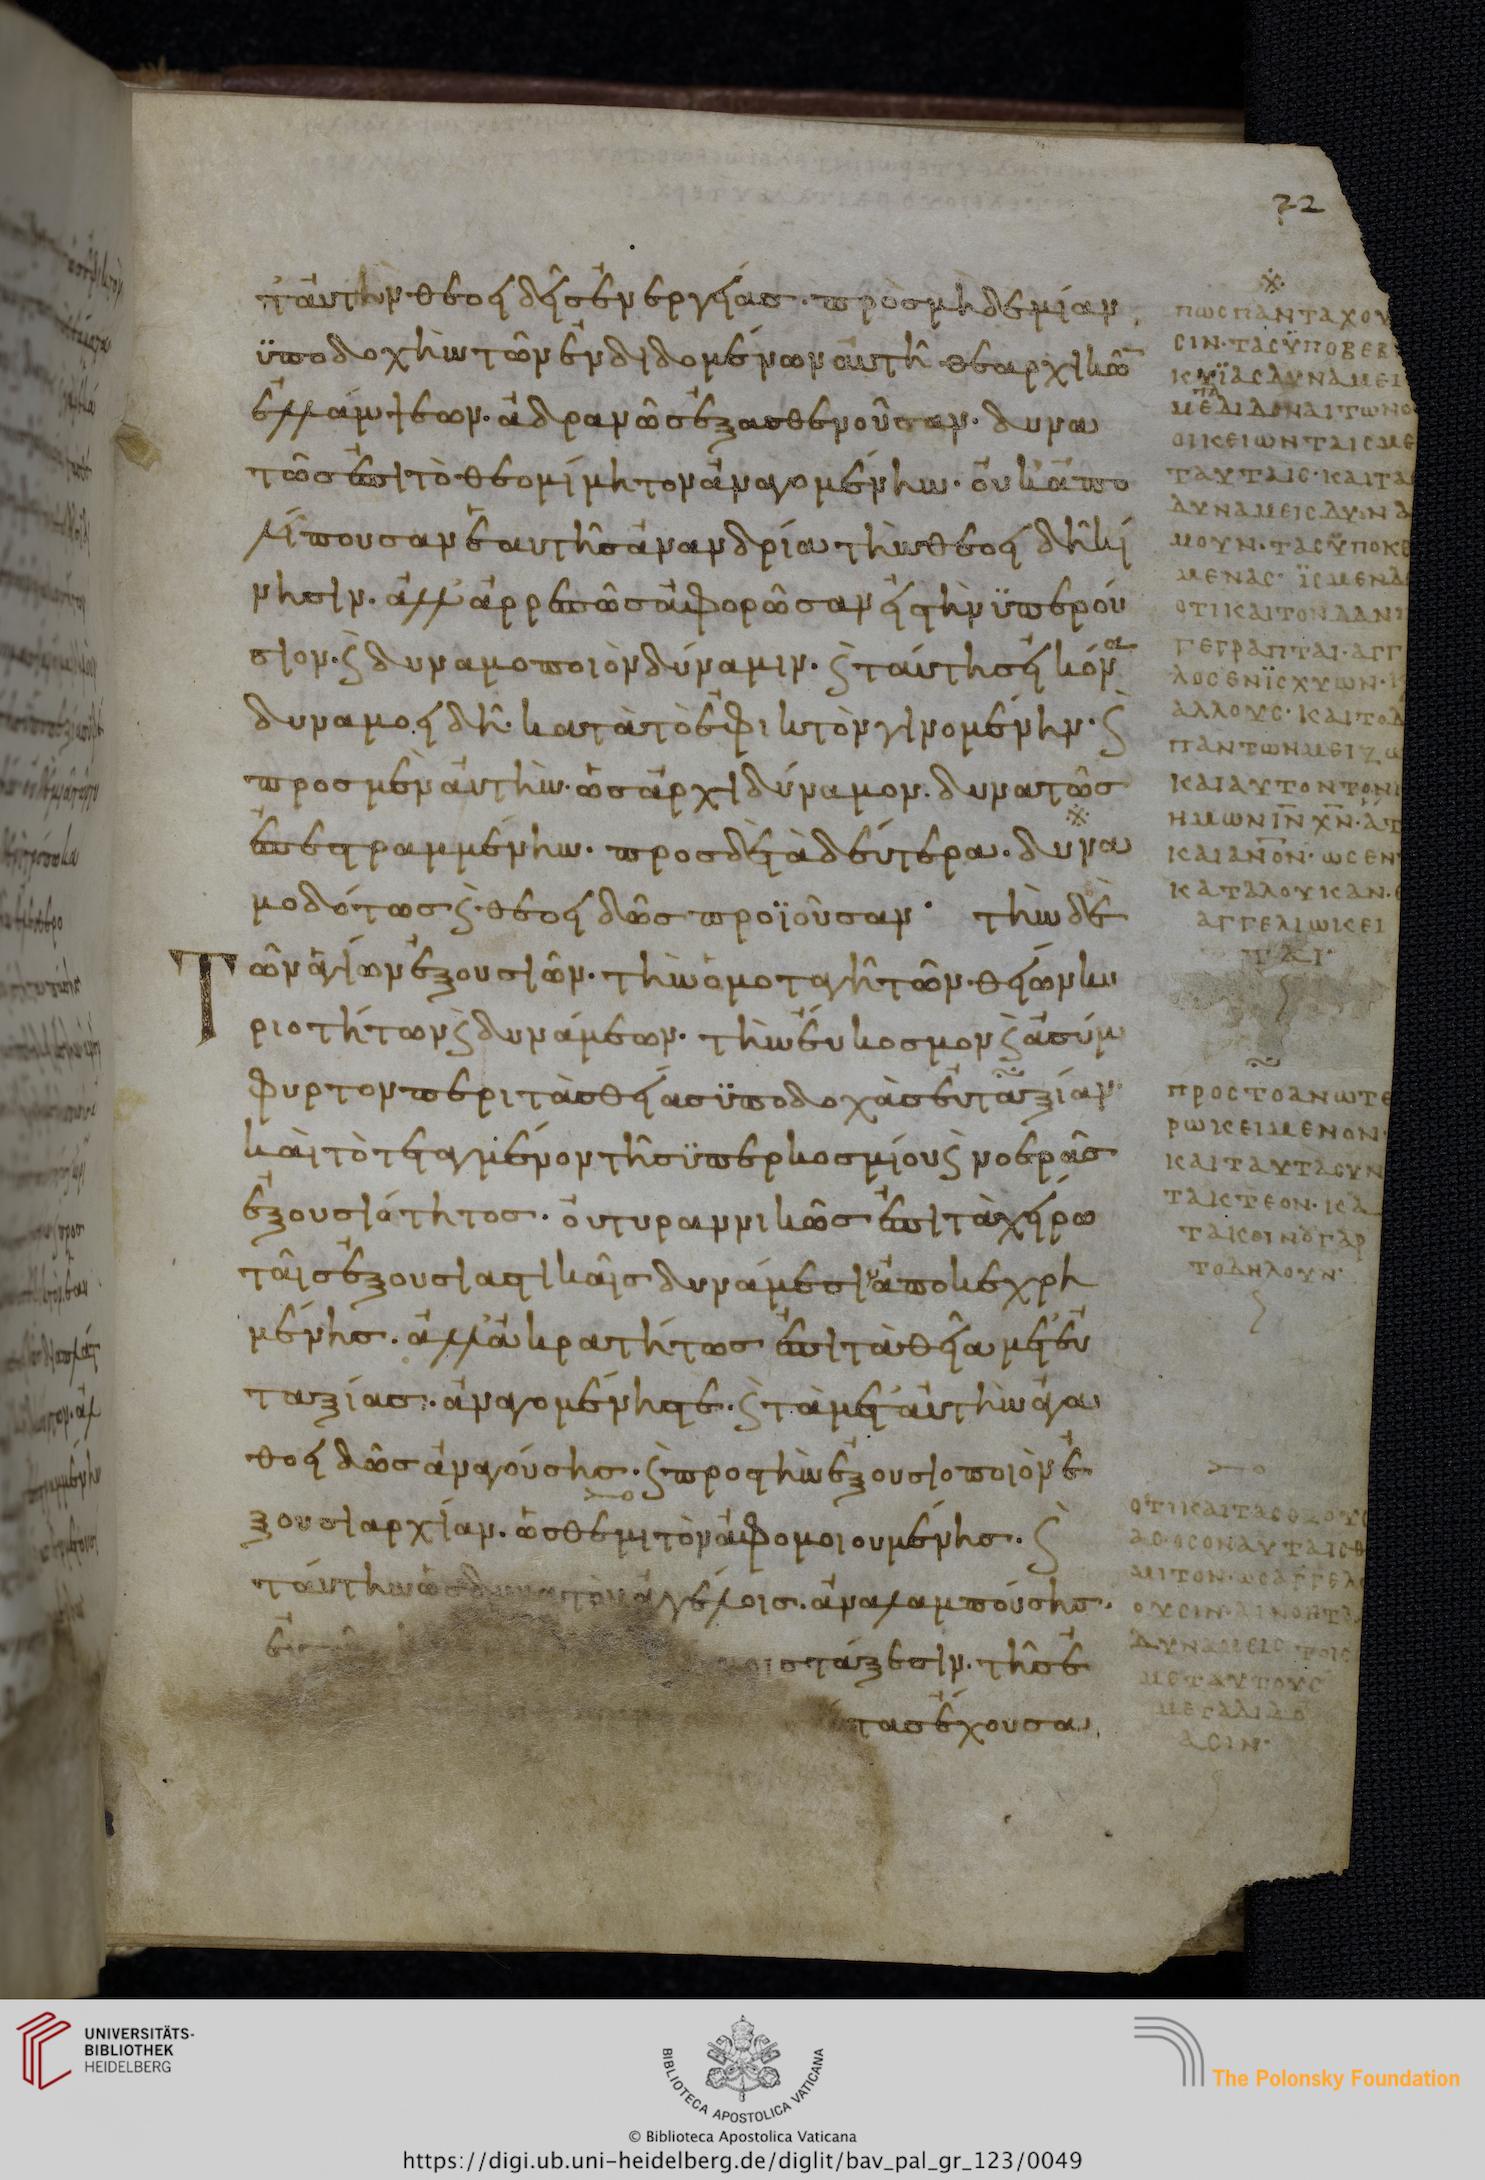 π' αὐτὴν θεοειδεῖς ἐνεργείας· πρὸς μηδεμίαν
ϋποδοχὴν τῶν ἐνδιδομένων αὐτῆ θεαρχικῶ
ἐλλάμψεων· ἀδρανῶς ἐξασθενοῦσαν· δυνα
τῶς ἐπὶ τὸ θεομίμητον ἀναγομένην· οὐκ ἀπο
λείπουσαν ἑαυτῆς ἀνανδρία τὴν θεοειδῆ κί
νησιν· ἀλλ' ἀρρεπῶς ἀφορῶσαν εἰς τὴν ϋπερού
σιον· ϗ δυναμοποιὸν δύναμιν· ϗ ταύτης εἰκόνα
δυναμοειδῆ· κατὰ τὸ ἐφικτὸν γινομένην· ϗ
προς μὲν αὐτὴν· ὡς ἀρχιδύναμον· δυνατῶς
ἐπεστραμμένην· προς δὲ τὰ δεύτερα· δυνα
μοδότως ϗ θεοειδῶς προϊοῦσαν· τὴν δὲ
Τῶν ἁγίων ἐξουσιῶν· τὴν ὁμοταγῆ τῶν θείων κυ
ριοτήτων ϗ δυνάμεων· τὴν εὔκοσμον ϗ ἀσύμ
φυρτον περι τὰς θείας ϋποδοχὰς εὐταξίαν·
καὶ τὸ τεταγμένον τῆς ϋπερκοσμίου ϗ νοερᾶς
ἐξουσιότητος· οὐ τυραννικῶς ἐπὶ τὰ χείρω
ταῖς ἐξουσιαστικαῖς δυνάμεσιν ἀποκεχρη
μένης· ἀλλ' ἀκρατήτως ἐπὶ τὰ θεῖα μετ' εὐ
ταξίας· ἀναγομένης τε· ϗ τὰ μετ' αὐτὴν ἀγα
θοειδῶς ἀναγούσης· ϗ προς τὴν ἐξουσιοποιὸν ἐ
ξουσιαρχίαν· ὡς θεμιτὸν ἀφομοιουμένης· ϗ
ταύτην ὡς δυνατὸν ἀγγέλοις· ἀναλαμπούσης·
τάξεσιν· τῆς ἐ
τας ἔχουσα
72
ΠΩΣ ΠΑΝΤΑΧΟΥ
ΣΙΝ· ΤΑΣ ΫΠΟΒΕΒ
ΚΥΪΑΣ ΔΥΝΑΜΕΙ
ΜΕΤΑΔΙΔΟΝΑΙ ΤΩΝ Ο
ΟΙΚΕΙΩΝ ΤΑΙΣ ΜΕ
ΤΑΥΤΑΙΣ· ΚΑΙ ΤΑ
ΔΥΝΑΜΕΙΣ ΔΥΝΑ
ΜΟΥΝ· ΤΑΣ ΫΠΟΚΕ
ΜΕΝΑΣ·
ΟΤΙ ΚΑΙ ΤΟΝ ΔΑΝΙ
ΓΕΓΡΑΠΤΑΙ· ΑΓΓ
ΛΟΣ ΕΝΪΣΧΥΩΝ·
ΑΛΛΟΥΣ· ΚΑΙ ΤΟΝ
ΠΑΝΤΩΝ ΜΕΙΖΩ
ΚΑΙ ΑΥΤΟΝ ΤΟΝ
ΗΜΩΝ ΙΝ ΧΝ·
ΚΑΙ ΑΝΟΝ· ΩΣ ΕΝ
ΚΑΤΑ ΛΟΥΚΑΝ· Ε
ΑΓΓΕΛΙΩ ΚΕΙ
ΤΑΙ·
ΠΡΟΣ ΤΟ ΑΝΩΤΕ
ΡΩ ΚΕΙΜΕΝΟΝ·
ΚΑΙ ΤΑΥΤΑ ΣΥΝ
ΤΑΚΤΕΟΝ· ΚΑ
ΤΑ ΚΟΙΝΟΥ ΓΑΡ
ΤΟ ΔΗΛΟΥΝ·
ΟΤΙ ΚΑΙ ΤΑΣ
ΟΣΟΝ ΑΥΤΑΙΣ Θ
ΜΙΤΟΝ· ΩΣ ΑΓΓΕΛΟ
ΔΥΝΑΜΕΙΣ ΤΟΙΣ
ΜΕΤ ΑΥΤΟΥΣ
ΜΕΤΑΔΙΔΟ
ΑΣΙΝ·
UNIVERSITÄTS-
BIBLIOTHEK
HEIDELBERG
BIBLIOTECA APOSTOLICA VATICANA
The Polonsky Foundation
© Biblioteca Apostolica Vaticana
https://digi.ub.uni-heidelberg.de/diglit/bav_pal_gr_123/0049